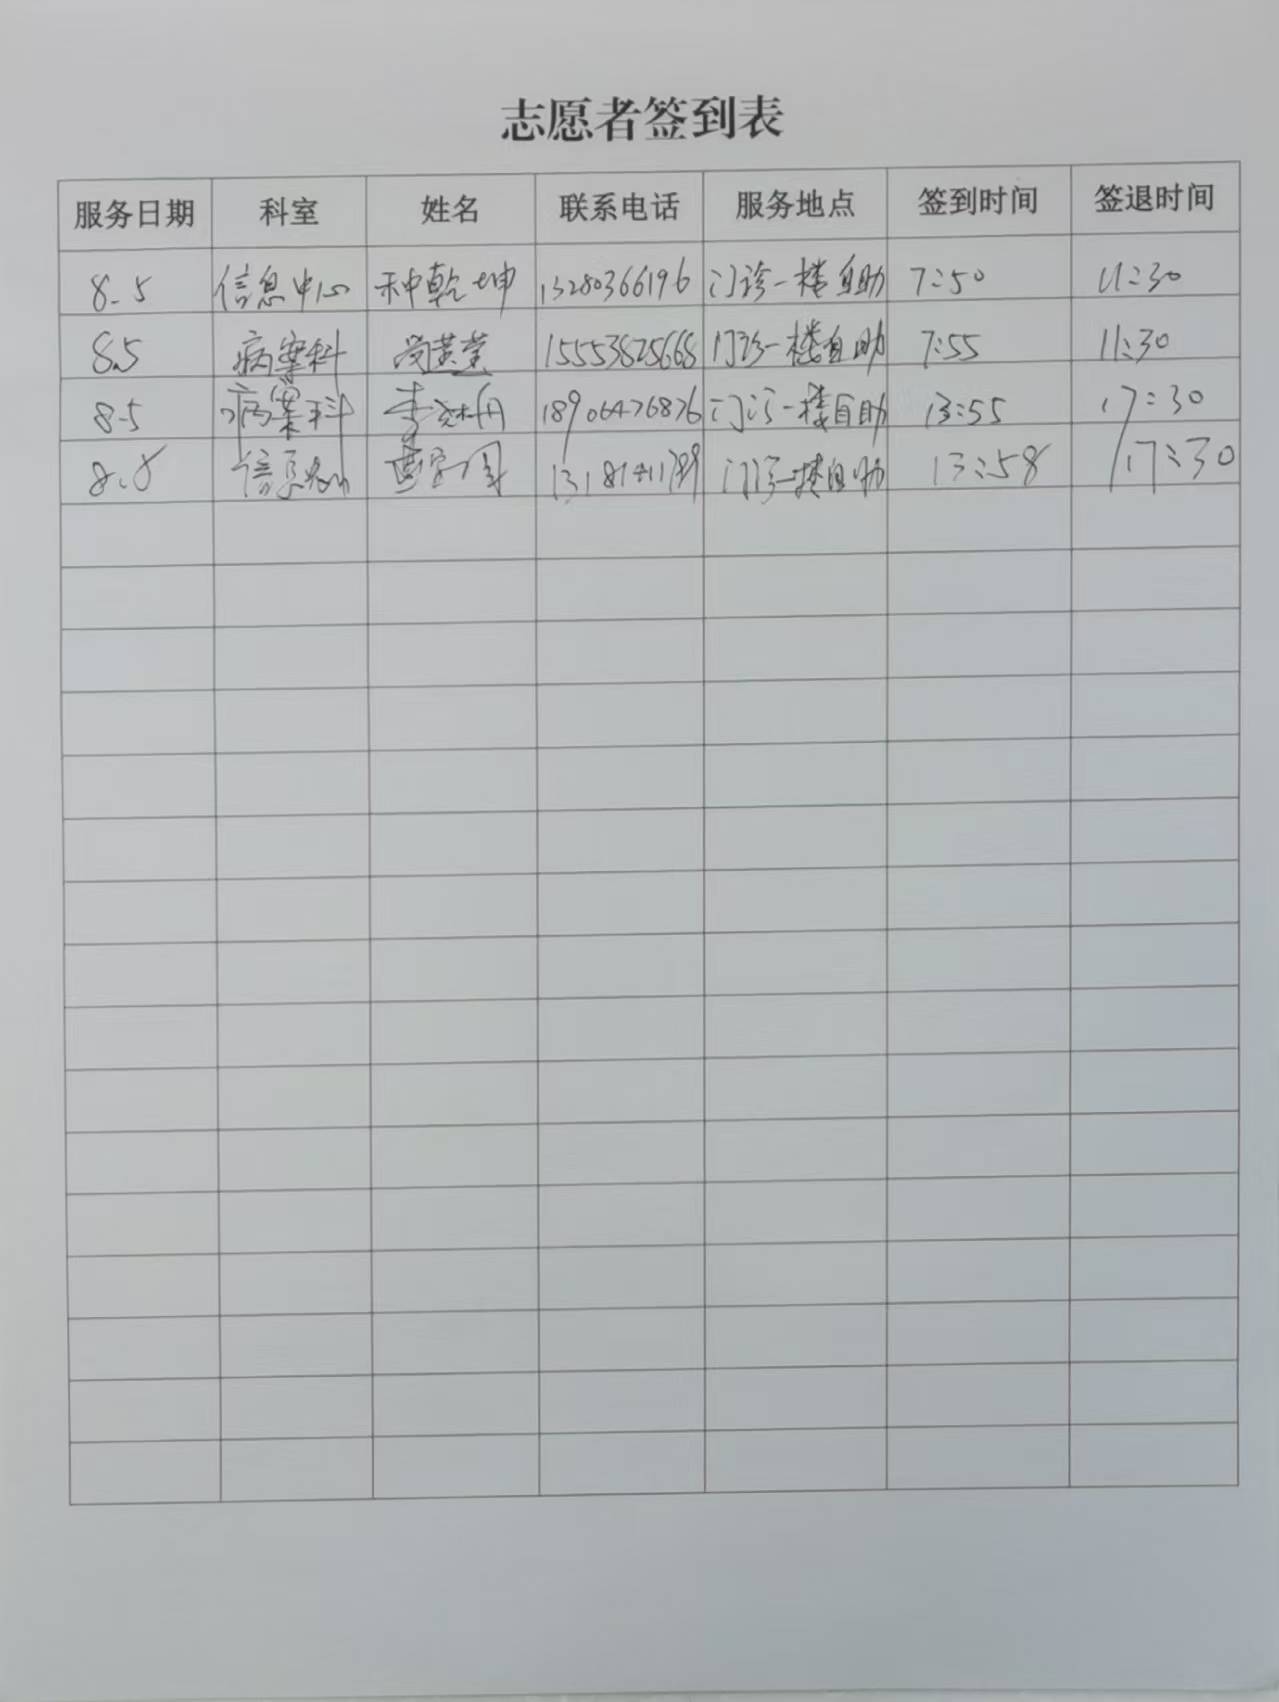 志愿者签到表
服务日期 科室 姓名 联系电话 服务地点 签到时间 签退时间
8.5 信息中心 种乾坤 13280366196 门诊一楼自助 7:50 11:30
8.5 病案科 15553825668 门诊一楼自助 7:55 11:30
8.5 病案科 李 丹 门诊一楼自助 13:55 17:30
门诊一楼自助 13:58 17:30